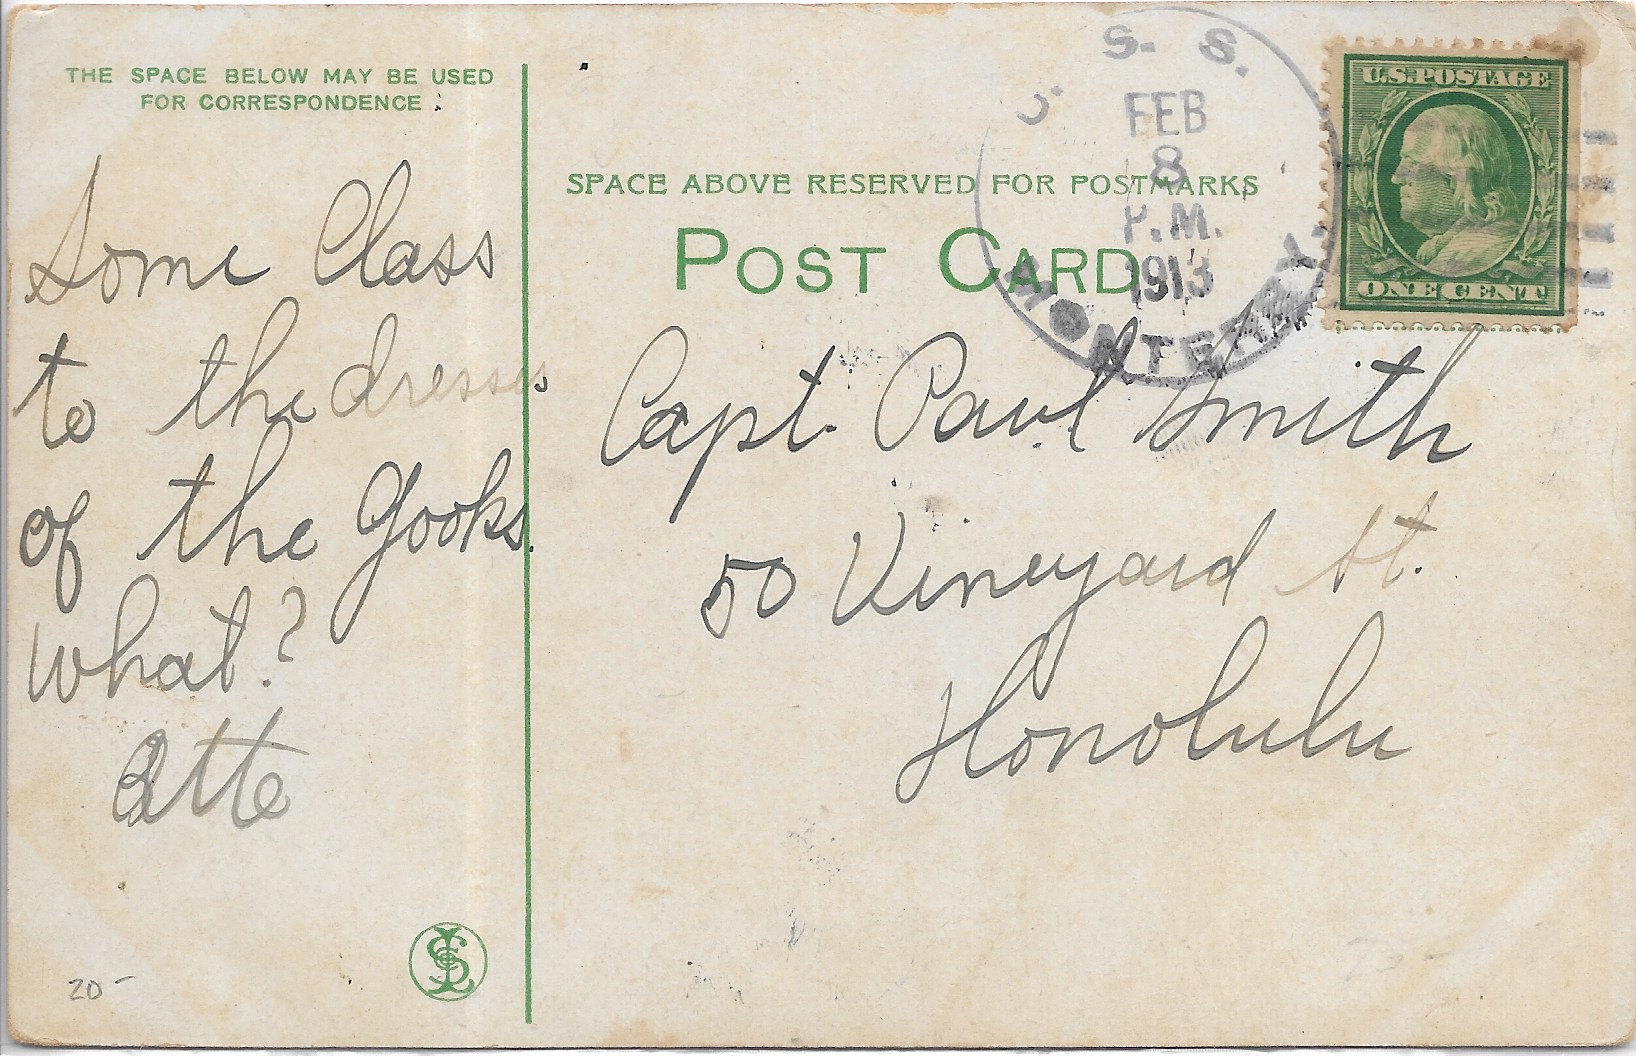 THE SPACE BELOW MAY BE USED
FOR CORRESPONDENCE.
Some Class
to the dresses
of the Gooks.
What?
Otto
20-
SPACE ABOVE RESERVED FOR POSTMARKS
POST CARD
U. S. S.
FEB
8
P.M.
1913
MONTEREY.
U.S. POSTAGE
ONE CENT
Capt. Paul Smith
50 Vineyard St.
Honolulu